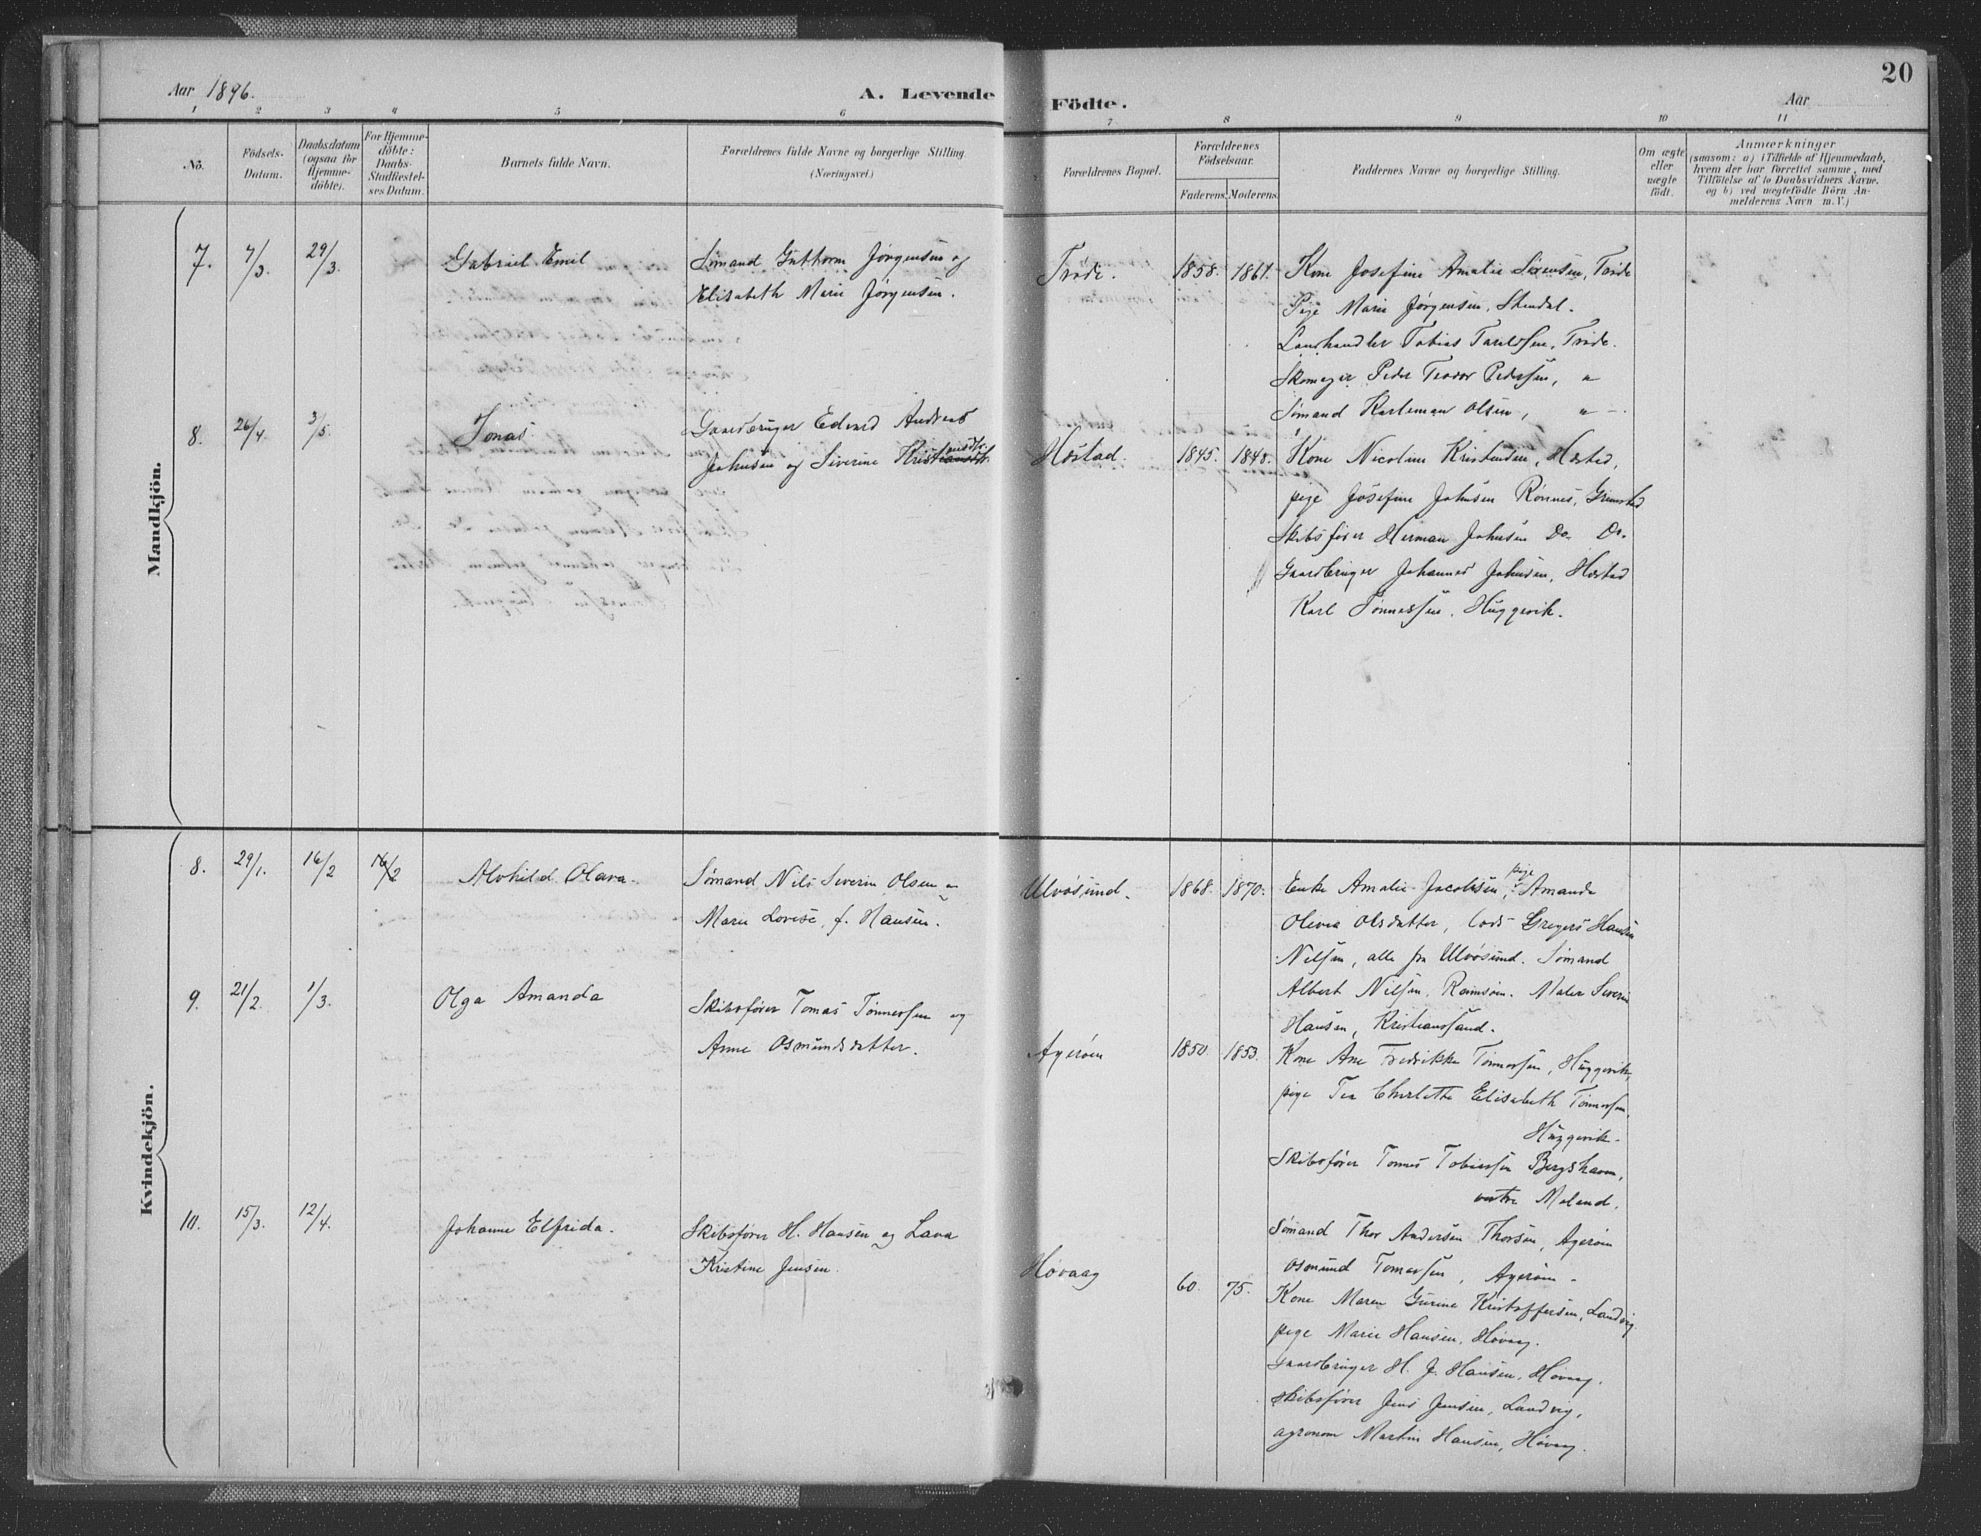 20
Aar 1896.
A. Levende Födte.
Aar
1 2 3 4 5 6 7 8 9 10 11
No.
Födsels-Datum.
Daabsdatum (ogsaa for Hjemme-döbte).
For Hjemme-döbte: Daabs-Stadfæstel-ses Datum.
Barnets fulde Navn.
Forældrenes fulde Navne og borgerlige Stilling (Næringsvei.)
Forældrenes Bopæl.
Forældrenes Födselsaar.
Faderens. Moderens.
Faddernes Navne og borgerlige Stilling.
Om ægte eller uægte födt.
Anmærkninger
(saasom: a) i Tilfælde af Hjemmedaab,
hvem der har forrettet samme, med
Tilföielse af to Daabsvidners Navne,
og b) ved uægtefödte Börn An-
melderens Navn m. V.)
Mandkjön.
7. 7/3. 29/3. Gabriel Emil
Sømand Guttorm Jørgensen og
Elisabeth Marie Jørgensen.
Trøde. 1858. 1861.
Kone Josefine Amalie Sørensen, Trøde
Pige Marie Jørgensen, Stendal.
Landhandler Tobias Taraldsen, Trøde.
Skomager Peder Teodor Pedersen, "
Sømand Karleman Olsen, "
8. 26/4. 3/5. Jonas.
Gaardbruger Edvard Andreas
Johnsen og Severine Kristiansdt.
Hæstad. 1845. 1848.
Kone Nicoline Kristensen, Hæstad,
pige Josefine Johnsen Rønnes, Grimstad
Skibsfører Herman Johnsen Do. Do.
Gaardbruger Johannes Johnsen, Hæstad
Karl Tønnessen, Huggevik.
Kvindekjön.
8. 29/1. 16/2 16/2 Alvhild Olava.
Sømand Nils Severin Olsen og
Marie Lovise, f. Hansen.
Ulvøsund. 1868. 1870.
Enke Amalie Jacobsen, pige Amanda
Olivia Olsdatter, Lods Gregers Hansen
Nilsen, alle fra Ulvøsund. Sømand
Albert Nilsen, Ramsøen. Maler Severin
Hansen, Kristianssand.
9. 21/2. 1/3. Olga Amanda
Skibsfører Tomas Tønnessen og
Anne Osmundsdatter.
Agerøen 1850. 1853.
Kone Ane Fredrikke Tønnessen, Huggevik,
pige Tea Charlotte Elisabeth Tønnessen,
Huggevik.
Skibsfører Tønnes Tobiassen Bergshavn,
vestre Moland.
Sømand Thor Andersen Thorsen, Agerøen
Osmund Tomassen, Agerøen.
10. 15/3. 12/4. Johanne Elfrida.
Skibsfører H. Hansen og Lava
Kristine Jensen.
Høvaag 60. 75.
Kone Maren Gurine Kristoffersen, Landvig
pige Marie Hansen, Høvag.
Gaardbruger H. J. Hansen, Høvag.
Skibsfører Jens Jensen, Landvig,
agronom Martin Hansen, Høvag.